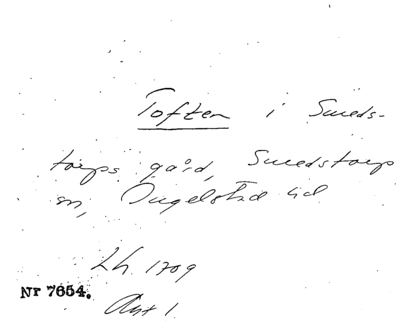 Toften i Smeds-
torps gård, Smedstorp
sn, Ingelstad hd
Lh. 1709
Nr 7654.
Akt 1.